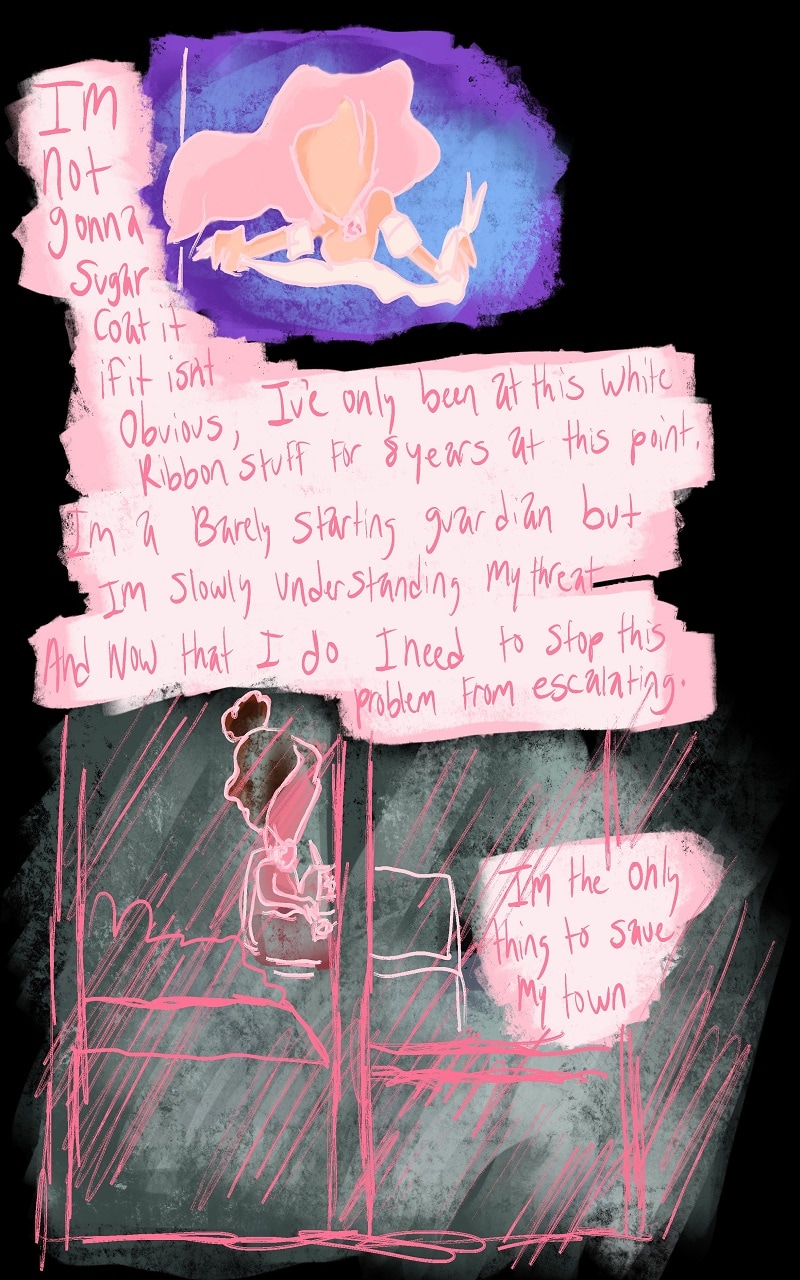 Im
not
gonna
Sugar
Coat it
if it isnt
Obvious, Ive only been at this white
Ribbon stuff for 8 years at this point.
Im a Barely starting guardian but
Im slowly understanding my threat
And Now that I do I need to stop this
problem from escalating.
Im the only
thing to save
My town